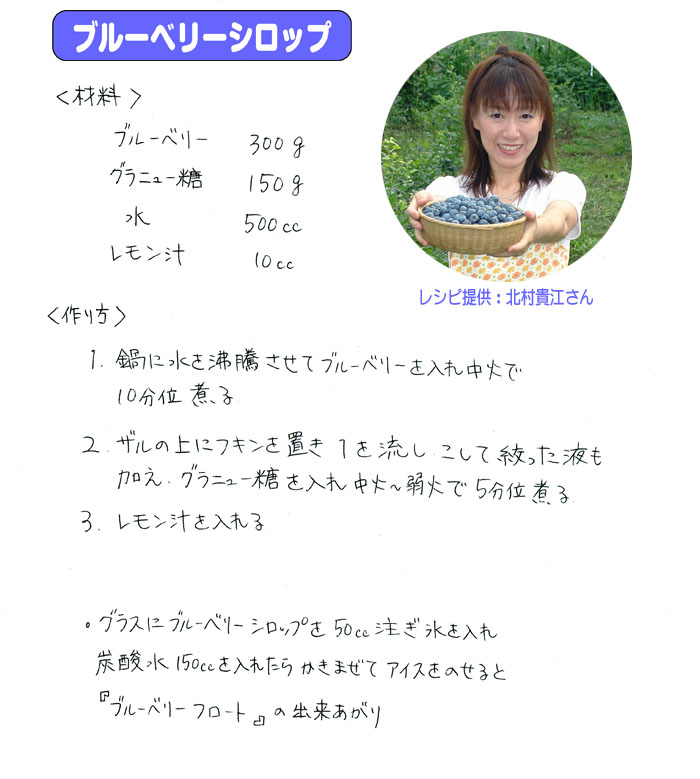 ブルーベリーシロップ
<材料>
ブルーベリー 300g
グラニュー糖 150g
水 500cc
レモン汁 10cc
レシピ提供：北村貴江さん
<作り方>
1. 鍋に水を沸騰させてブルーベリーを入れ中火で
10分位煮る
2. ザルの上にフキンを置き 1を流し こして絞った液も
加え、グラニュー糖を入れ中火〜弱火で5分位煮る
3. レモン汁を入れる
・グラスにブルーベリーシロップを50cc注ぎ氷を入れ
炭酸水150ccを入れたらかきまぜてアイスをのせると
『ブルーベリーフロート』の出来あがり